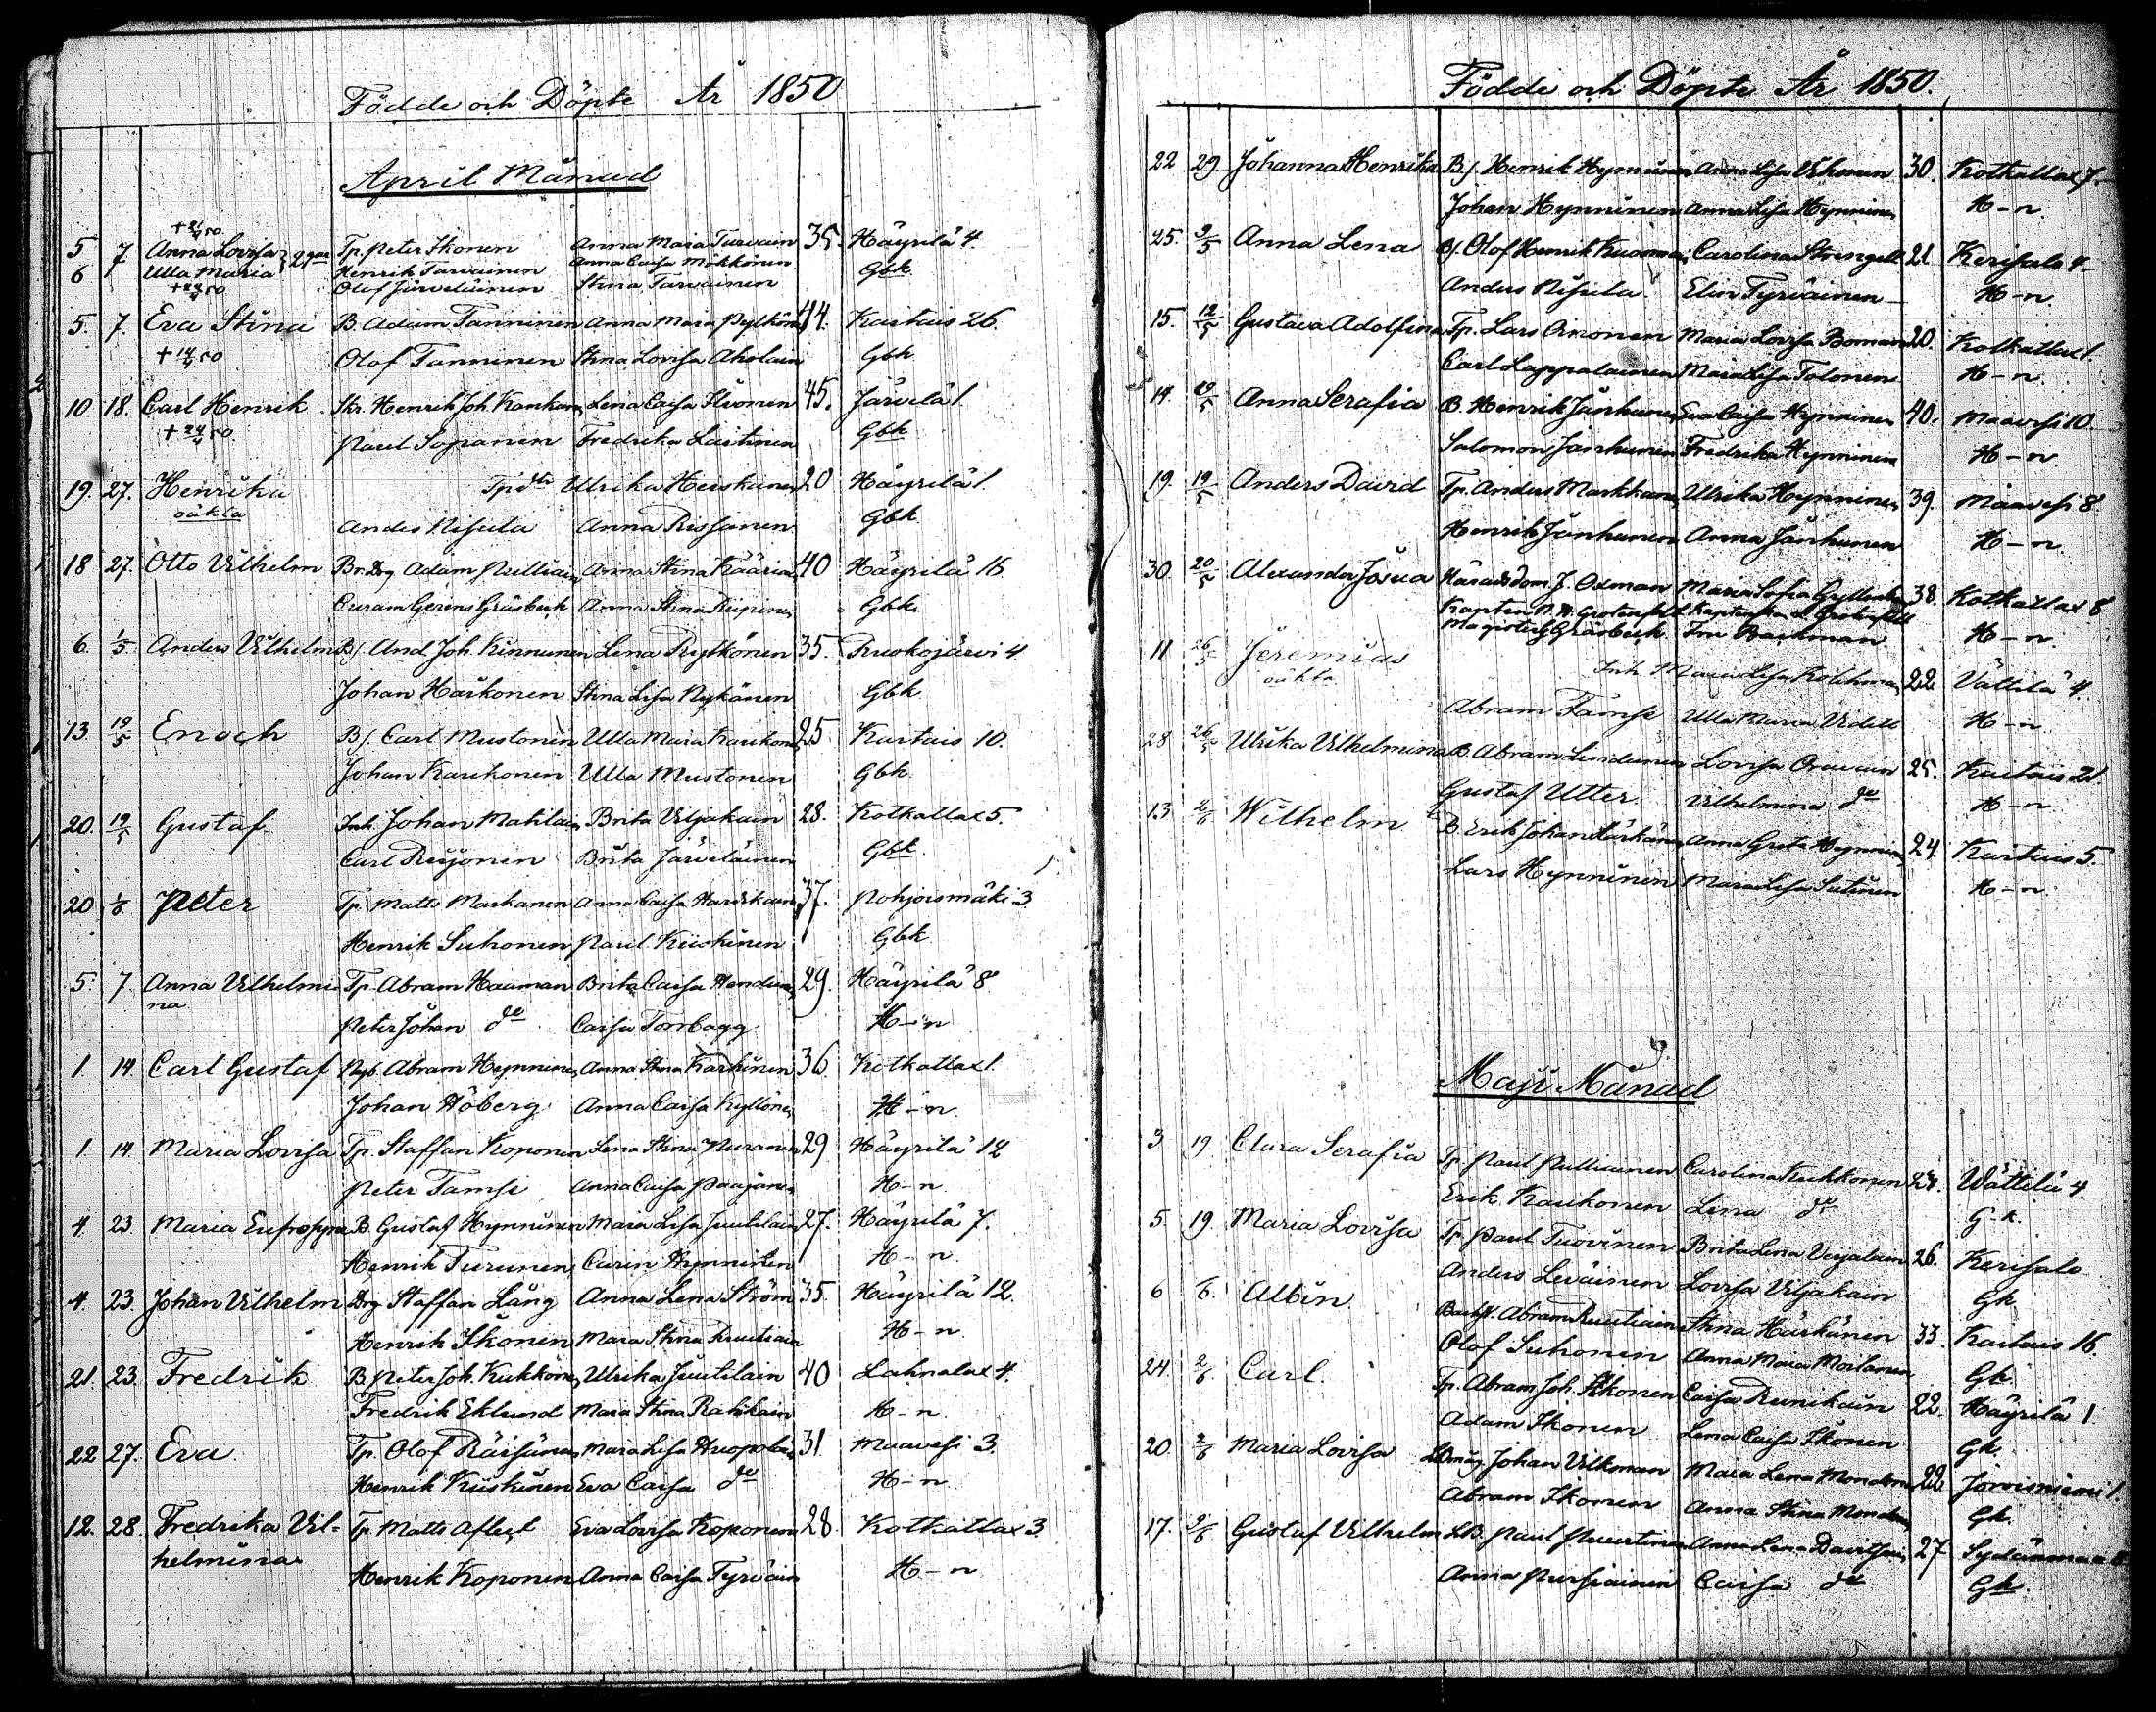 Födde och Döpte År 1850
April Månad
+ 21/4 50
5 7 Anna Lovisa 2gar Tp. Peter Ikonen Anna Maria Turvain 35. Häyrilä 4.
6 Ulla Maria Henrik Tarvainen Anna Caisa Mökkönen Gbk
Olof Järveläinen Stina Tarvainen
5. 7. Eva Stina B. Adam Tanninen Anna Maria Pylkön 44. Kartais 26.
+ 14/4 50 Olof Tanninen Stina Lovisa Aholain Gbk
10. 18. Carl Henrik Henrik Joh. Kankun Lena Caisa 45. Järvilä 1.
+ 24/4 50 Paul Sopanen Fredrika Laitinen Gbk
19. 27. Henrika Ulrika Heiskanen 20 Häyrilä 1.
oäkta Anders Nisula Anna Rissanen Gbk
18 27. Otto Vilhelm Adam Pulliain Anna Stina Kääriäi 40 Häyrilä 16
Gräsbeck Anna Stina Gbk.
6. 1/5 Anders Vilhelm B/. And Joh. Kinnunen Lena Rytkönen 35. Ruokojärvi 4.
Johan Harkonen Stina Lisa Nykänen Gbk
13 19/5 Enoch B/. Carl Mustonen Ulla Maria Kaukone 25. Kartais 10.
Johan Kaukonen Ulla Mustonen Gbk
20. 19/5 Gustaf Inh. Johan Matilain Brita Viljakain 28. Kotkatlax 5.
Carl Reijonen Brita Järveläinen Gbk.
20 1/6 Peter Tp. Matts Markanen Anna Caisa 37. Pohjoismäki 3.
Henrik Suhonen Paul. Kiiskinen Gbk
5. 7. Anna Vilhelmi- Tp. Abram Haaman Brita Caisa 29. Häyrilä 8
na. Peter Johan do Caisa Tornbagg H-n
1. 14. Carl Gustaf Nyb. Abram Hynninen Anna Stina Karhinen 36. Kotkatlax 1.
Johan Höberg Anna Caisa Kyllöne H-n.
1. 14. Maria Lovisa Tp. Staffan Koponen Lena Stina Puranen 29 Häyrilä 12
Peter Tamsi Anna Caisa Paajane H-n.
4. 23. Maria Eufrosyne B. Gustaf Hynninen Maria Lisa Juutilain 27. Häyrilä 7.
Henrik Turunen Carin Hynninen H-n.
4. 23. Johan Vilhelm Drg Staffan Lång Anna Lena Ström 35. Häyrilä 12.
Henrik Ikonen Maria Stina H-n.
21. 23. Fredrik B. Peter Joh. Kukkone Ulrika Juutilain 40 Lahnalax 4.
Fredrik Eklund Maria Stina Ratikain H-n.
22 27. Eva Tp. Olof Räisänen Maria Lisa Huopolain 31. Maavesi 3.
Henrik Kiiskinen Eva Caisa do H-n
12. 28. Fredrika Vil- Tp. Matts Eva Lovisa Koponen 28. Kotkatlax 3.
helmina Henrik Koponen Anna Caisa Tyriäin H-n
Födde och Döpte År 1850.
22 29. Johanna Henrika B/. Henrik Hynninen Anna Lisa Vihonen 30. Kotkatlax 7.
Johan Hynninen Anna Lisa Hynninen H-n.
25. 3/5 Anna Lena B/. Olof Henrik Kuosma Carolina Strengell 21 Kerisalo 4
Anders Nisula Elin Tyriäinen H-n.
15. 12/5 Gustava Adolfina Tp. Lars Oinonen Maria Lovisa Boman 20. Kotkatlax 1.
Carl Lappalainen Maria Lisa Tolonen H-n.
14. 19/5 Anna Serafia B. Henrik Jänhunen Eva Caisa Hynninen 40. Maavesi 10.
Salomon Jänhunen Fredrika Hynninen H-n.
19. 19/5 Anders David Tp. Anders Markkane Ulrika Hynninen 39. Maavesi 8
Henrik Jänhunen Anna Jänhunen H-n.
30. 20/5 Alexander Josua Häradsdom. J. Oxman Maria Sofia 38. Kotkatlax 8
Kapten Grotenfelt Kaptenska Grotenfelt
Magister G Gräsbeck. Backman H-n.
11 26/5 Jeremias Inh. Maria Lisa Kolehma 22 Vättilä 4.
oäkta Abram Tamse Ulla Maria Videll H-n
28. 26/5 Ulrika Vilhelmina B. Abram Lovisa Oravain 25. Kartais 21.
Gustaf Utter. Vilhelmina do H-n
13. 2/6 Wilhelm B. Erik Johan Härkäne Anna Greta Hynnin 24. Kartais 5.
Lars Hynninen Maria Lisa Sutinen H-n
Maji Månad
3. 19 Clara Serafia Tp. Paul Pulliainen Carolina Kukkonen 24. Wättilä 4
Erik Kaukonen Lena do G-k.
5. 19. Maria Lovisa Tp. Paul Tuovinen Brita Lena 26. Kerisalo
Anders Leväinen Lovisa Viljakain Gk
6 Albin Abram Ruutiain Stina Härkänen 33. Kartais 16.
Olof Suhonen Anna Maria Moilanen Gk.
24. 2/6 Carl. Tp. Abram Joh. Ikonen Caisa Reinikain 22. Häyrilä 1
Adam Ikonen Lena Caisa Ikonen Gk.
20. 2/6 Maria Lovisa Johan Vilkman Maria Lena Mondone 22. Joroisniemi 1.
Abram Ikonen Anna Stina Gk.
17. 2/6 Gustaf Vilhelm LB. Paul Puurtinen Anna Lena Davitsain 27 Sydänmaa 6
Anna Pursiainen Caisa do Gk.